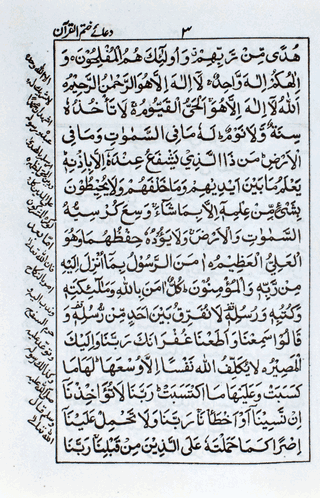 ٣
دعائے ختم القرآن
هُدًى مِّنْ رَّبِّهِمْ وَاُولٰٓئِكَ هُمُ الْمُفْلِحُوْنَ وَ
اِلٰهُكُمْ اِلٰهٌ وَّاحِدٌ لَآ اِلٰهَ اِلَّا هُوَ الرَّحْمٰنُ الرَّحِيْمُ
اَللّٰهُ لَآ اِلٰهَ اِلَّا هُوَ الْحَيُّ الْقَيُّوْمُ لَا تَأْخُذُهٗ
سِنَةٌ وَّلَا نَوْمٌ لَهٗ مَا فِي السَّمٰوٰتِ وَمَا فِي
الْاَرْضِ مَنْ ذَا الَّذِيْ يَشْفَعُ عِنْدَهٗٓ اِلَّا بِاِذْنِهٖ
يَعْلَمُ مَا بَيْنَ اَيْدِيْهِمْ وَمَا خَلْفَهُمْ وَلَا يُحِيْطُوْنَ
بِشَيْءٍ مِّنْ عِلْمِهٖٓ اِلَّا بِمَا شَآءَ وَسِعَ كُرْسِيُّهُ
السَّمٰوٰتِ وَالْاَرْضَ وَلَا يَـُٔوْدُهٗ حِفْظُهُمَا وَهُوَ
الْعَلِيُّ الْعَظِيْمُ اٰمَنَ الرَّسُوْلُ بِمَآ اُنْزِلَ اِلَيْهِ
مِنْ رَّبِّهٖ وَالْمُؤْمِنُوْنَ كُلٌّ اٰمَنَ بِاللّٰهِ وَمَلٰٓئِكَتِهٖ
وَكُتُبِهٖ وَرُسُلِهٖ لَا نُفَرِّقُ بَيْنَ اَحَدٍ مِّنْ رُّسُلِهٖ وَ
قَالُوْا سَمِعْنَا وَاَطَعْنَا غُفْرَانَكَ رَبَّنَا وَاِلَيْكَ
الْمَصِيْرُ لَا يُكَلِّفُ اللّٰهُ نَفْسًا اِلَّا وُسْعَهَا لَهَا مَا
كَسَبَتْ وَعَلَيْهَا مَا اكْتَسَبَتْ رَبَّنَا لَا تُؤَاخِذْنَآ
اِنْ نَّسِيْنَآ اَوْ اَخْطَأْنَا رَبَّنَا وَلَا تَحْمِلْ عَلَيْنَآ
اِصْرًا كَمَا حَمَلْتَهٗ عَلَى الَّذِيْنَ مِنْ قَبْلِنَا رَبَّنَا